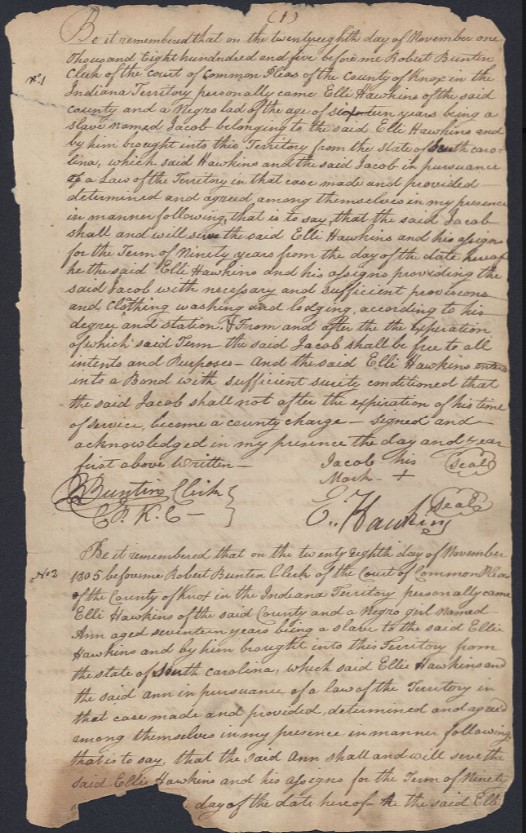 (1)
Be it remembered that on the twenty eighth day of November one
No 1
Thousand Eight hundred and five before me Robert Buntin
Clerk of the Court of Common Pleas of the County of Knox in the
Indiana Territory personally came Elli Hawkins of the said
county and a Negro lad of the age of sixteen years being a
slave named Jacob belonging to the said Elli Hawkins and
by him brought into this Territory from the State of South caro-
lina, which said Hawkins and the said Jacob in pursuance
of a Law of the Territory in that case made and provided
determined and agreed among themselves in my presence
in manner following, that is to say, that the said Jacob
shall and will serve the said Elli Hawkins and his assigns
for the Term of Ninety years from the day of the date hereof
he the said Elli Hawkins and his assigns providing the
said Jacob with necessary and sufficient provisions
and Clothing washing and lodging, according to his
degree and station, & From and after the the expiration
of which said Term the said Jacob shall be free to all
intents and Purposes - And the said Elli Hawkins entered
into a Bond with sufficient surity conditioned that
the said Jacob shall not after the expiration of his time
of service, become a county charge - signed and
acknowledged in my presence the day and year
first above Written -
Jacob his (Seal)
Mark +
R Buntin Clerk
C. P. K. C -
E. Hawkins (Seal)
Be it remembered that on the twenty Eighth day of November
No 2
1805 before me Robert Buntin Clerk of the Court of Common Pleas
of the County of Knox in the Indiana Territory personally came
Elli Hawkins of the said County and a Negro girl named
Ann aged seventeen years being a slave to the said Ellie
Hawkins and by him brought into this Territory from
the state of South Carolina, which said Ellie Hawkins and
the said ann in pursuance of a law of the Territory in
that case made and provided, determined and agreed
among themselves in my presence in manner following
that is to say, that the said Ann shall and will serve the
said Ellie Hawkins and his assigns for the Term of Ninety
day of the date hereof he the said Elli